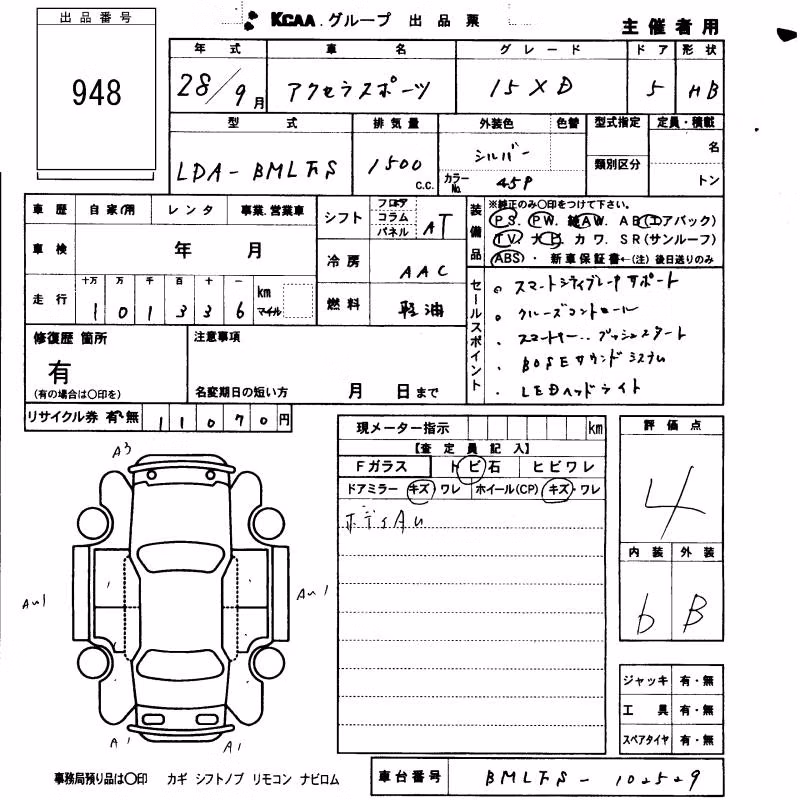 KCAA.グループ 出品票
主催者用
出品番号
948
年式 車名 グレード ドア 形状
28/9月 アクセラスポーツ 15XD 5 HB
型式 排気量 外装色 色替 型式指定 定員・積載
LDA- 1500 c.c. シルバー 類別区分 名
カラーNo. 45P トン
車歴 自家用 レンタ 事業.営業車
車検 年 月
走行 十万 万 千 百 十 一 km マイル
1 0 1 3 3 6
シフト フロア コラム パネル AT
冷房 AAC
燃料 軽油
装備品
※純正のみ○印をつけて下さい。
PS. PW. AW. AB(エアバック)
TV. ナビ. カワ. SR(サンルーフ)
ABS・ 新車保証書←(注) 後日送りのみ
セールスポイント
スマートシティブレーキサポート
クルーズコントロール
スマートキー.. プッシュスタート
BOSEサウンドシステム
LEDヘッドライト
修復歴 箇所
有
(有の場合は○印を)
注意事項
名変期日の短い方 月 日まで
リサイクル券 有・無 11070円
現メーター指示 km
【査定員記入】
Fガラス トビ石 ヒビワレ
ドアミラー キズ・ワレ ホイール(CP) キズ・ワレ
ボディAU
評価点
4
内装 外装
6 B
A3
AU1 AU1
A1 A1
ジャッキ 有・無
工具 有・無
スペアタイヤ 有・無
事務局預り品は○印 カギ シフトノブ リモコン ナビロム
車台番号